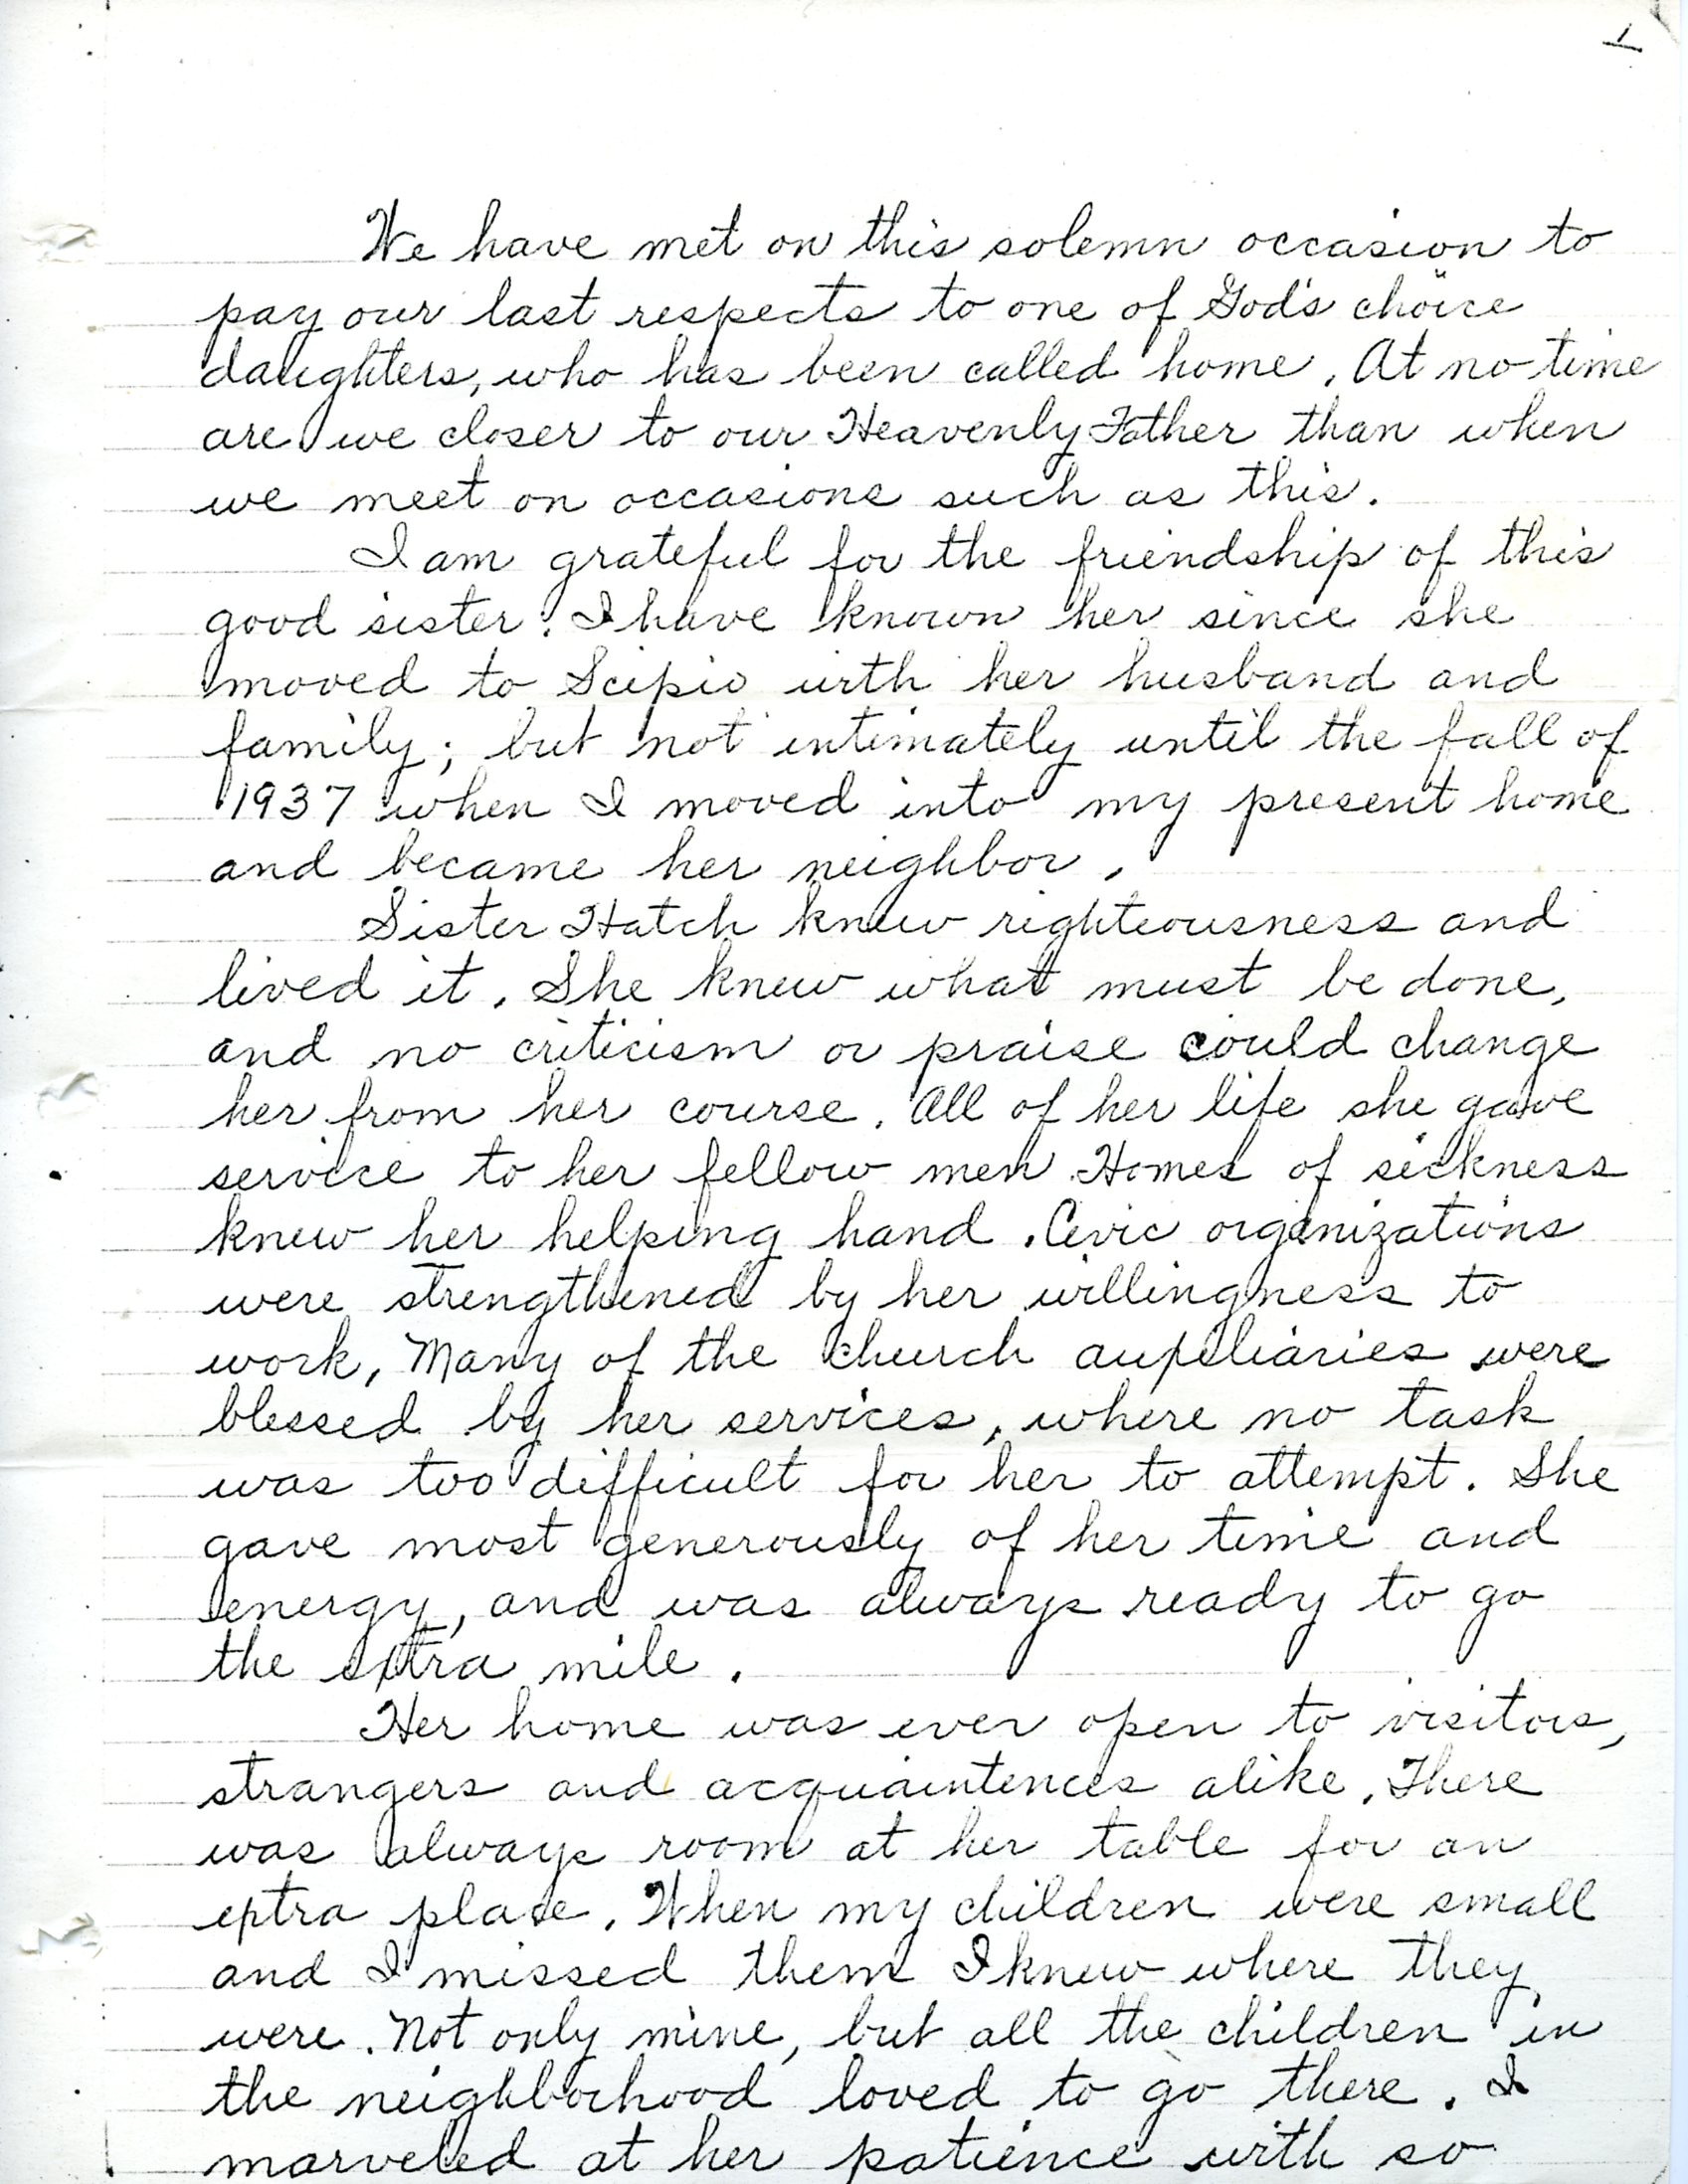 1
We have met on this solemn occasion to
pay our last respects to one of God's choice
daughters, who has been called home. At no time
are we closer to our Heavenly Father than when
we meet on occasions such as this.
I am grateful for the friendship of this
good sister. I have known her since she
moved to Scipio with her husband and
family; but not intimately until the fall of
1937 when I moved into my present home
and became her neighbor.
Sister Hatch knew righteousness and
lived it. She knew what must be done,
and no criticism or praise could change
her from her course. All of her life she gave
service to her fellow men. Homes of sickness
knew her helping hand. Civic organizations
were strengthened by her willingness to
work, Many of the church auxiliaries were
blessed by her services, where no task
was too difficult for her to attempt. She
gave most generously of her time and
energy, and was always ready to go
the extra mile.
Her home was ever open to visitors,
strangers and acquaintences alike. There
was always room at her table for an
extra place. When my children were small
and I missed them I knew where they
were. Not only mine, but all the children in
the neighborhood loved to go there. I
marveled at her patience with so